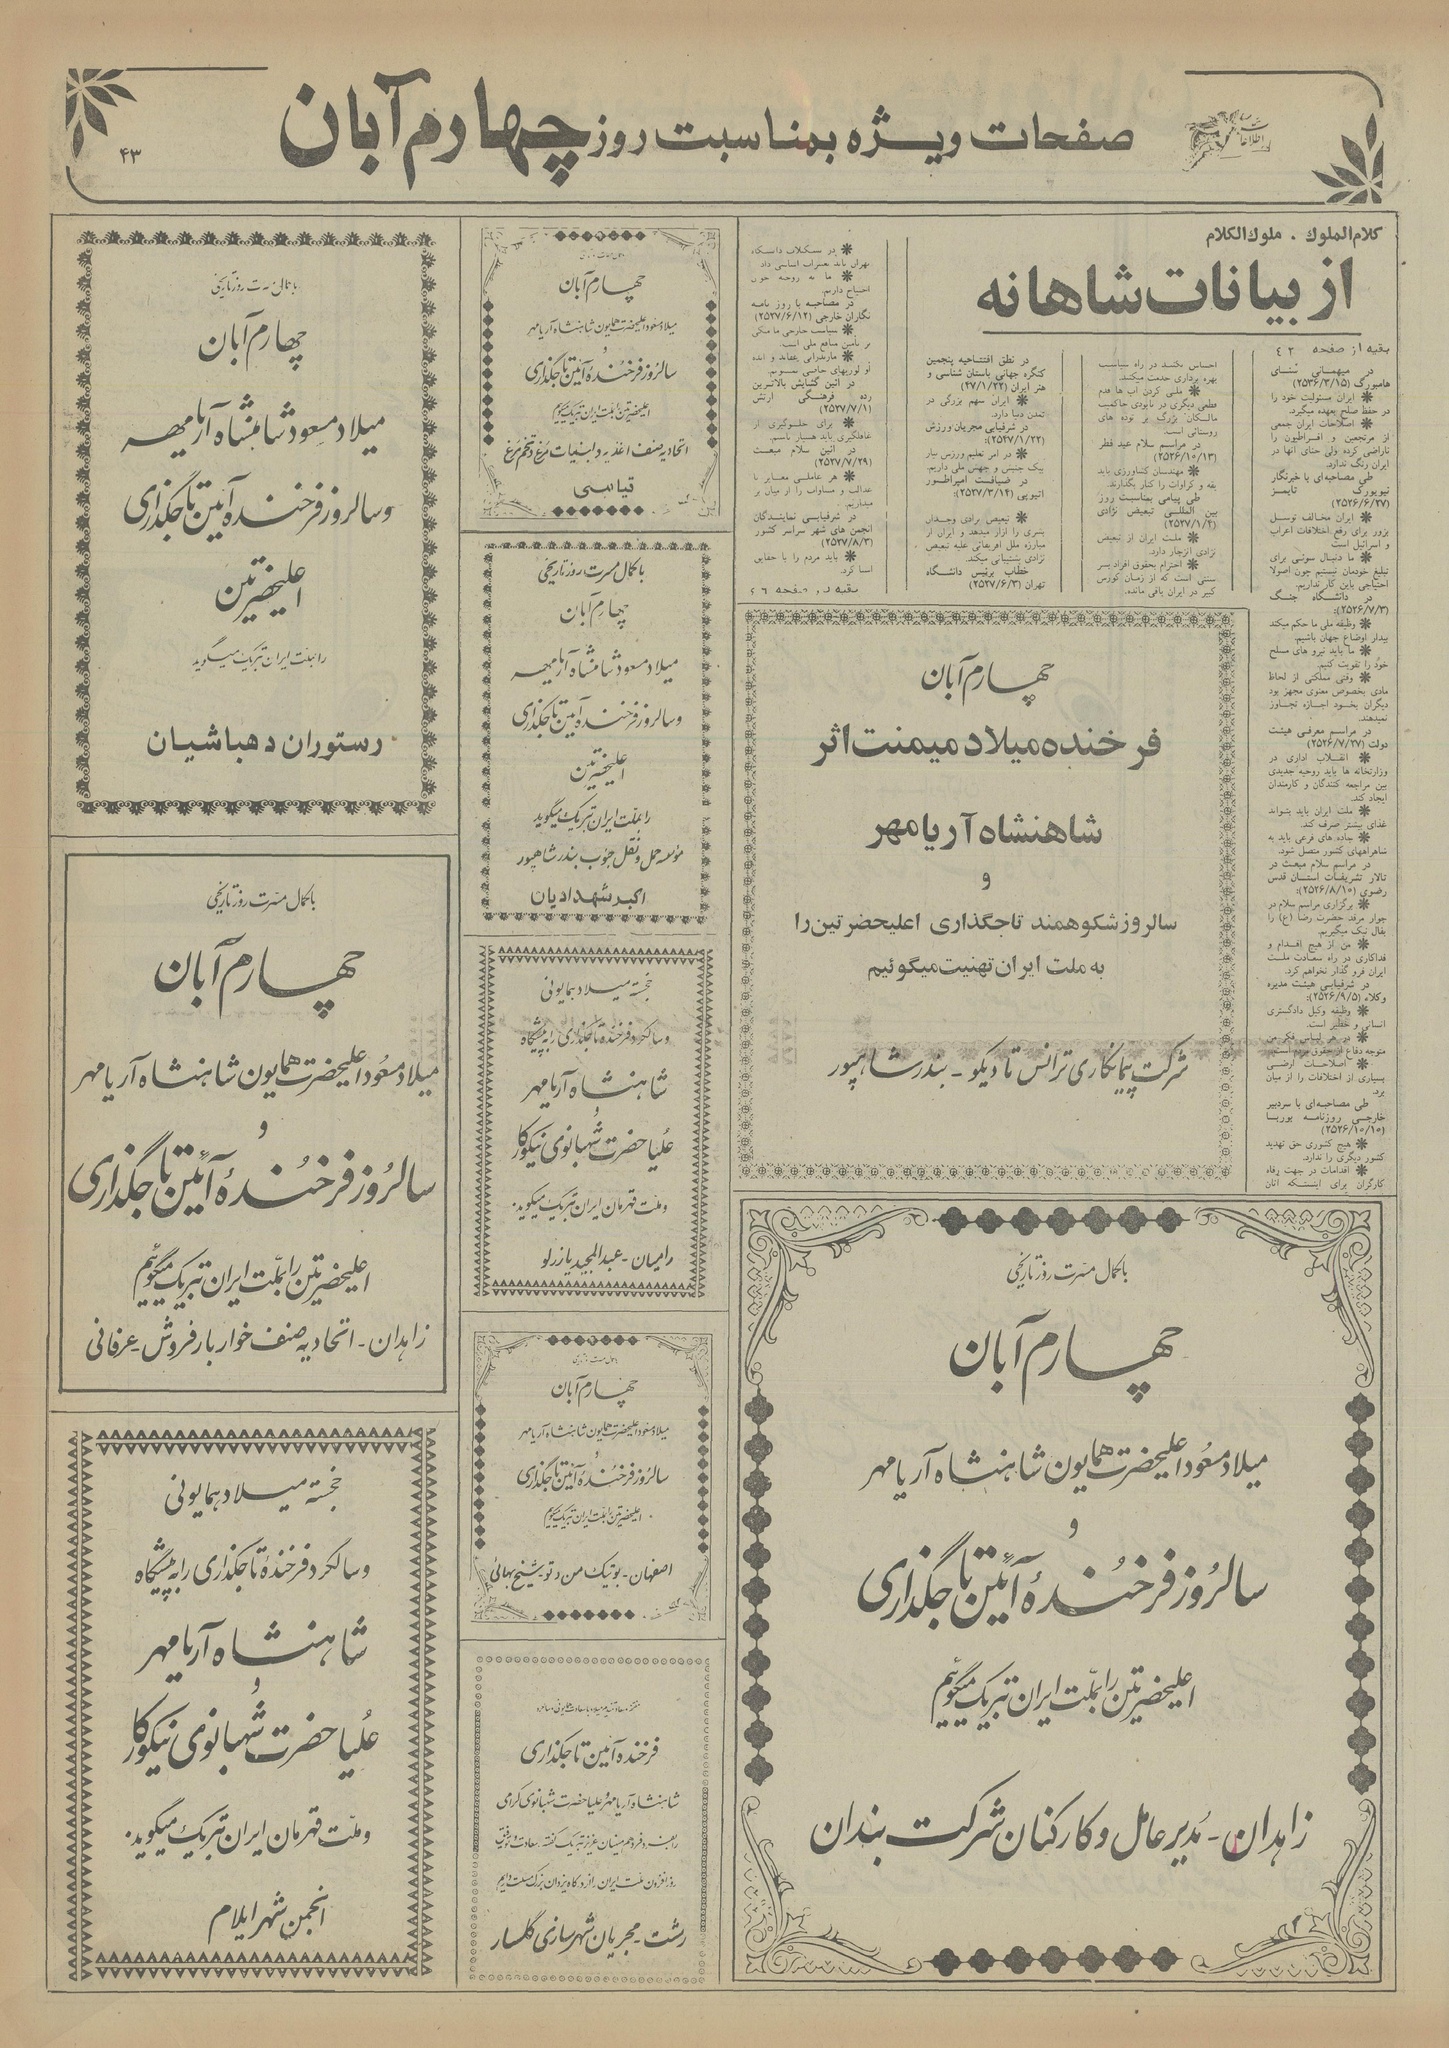 صفحات ویژه بمناسبت روز چهارم آبان
اطلاعات
۴۳
کلام‌الملوك . ملوك‌الکلام
از بیانات شاهانه
بقیه از صفحه ۴۲
در میهمانی سنای
هامبورگ (۲۵۳۶/۳/۱۵)
❋ ایران مسئولیت خود را
در حفظ صلح بعهده میگیرد.
❋ اصلاحات ایران جمعی
از مرتجعین و افراطیون را
ناراضی کرده ولی حنای آنها در
ایران رنگ ندارد.
طی مصاحبه‌ای با خبرنگار
نیویورک تایمز
(۲۵۲۶/۶/۲۷)
❋ ایران مخالف توسل
بزور برای رفع اختلافات اعراب
و اسرائیل است
❋ ما دنبال سوئی برای
تبلیغ خودمان نیستم چون اصولا
احتیاجی باین کار نداریم.
در دانشگاه جنگ
(۲۵۲۶/۷/۳):
❋ وظیفه ملی ما حکم میکند
بیدار اوضاع جهان باشیم.
❋ ما باید نیرو های مسلح
خود را تقویت کنیم.
❋ وقتی مملکتی از لحاظ
مادی بخصوص معنوی مجهز بود
دیگران بخود اجازه تجاوز
نمیدهند.
در مراسم معرفی هیئت
دولت (۲۵۲۶/۷/۲۷)
❋ انقلاب اداری در
وزارتخانه ها باید روحیه جدیدی
بین مراجعه کنندگان و کارمندان
ایجاد کند.
❋ ملت ایران باید بتواند
غذای بیشتر صرف کند.
❋ جاده های فرعی باید به
شاهراههای کشور متصل شود.
در مراسم سلام مبعث در
تالار تشریفات آستان قدس
رضوی (۲۵۲۶/۸/۱۰):
❋ برگزاری مراسم سلام در
جوار مرقد حضرت رضا (ع) را
بفال نیک میگیریم.
❋ من از هیچ اقدام و
فداکاری در راه سعادت ملت
ایران فرو گذار نخواهم کرد.
در شرفیابی هیئت مدیره
وکلاء (۲۵۲۶/۹/۵):
❋ وظیفه وکیل دادگستری
انسانی و خطیر است.
❋ در هر لباس فکر من
متوجه دفاع از حقوق مردم است.
❋ اصلاحات ارضی
بسیاری از اختلافات را از میان
برد.
طی مصاحبه‌ای با سردبیر
خارجی روزنامه بوربا
(۲۵۲۶/۱۰/۱۰)
❋ هیچ کشوری حق تهدید
کشور دیگری را ندارد.
❋ اقدامات در جهت رفاه
کارگران برای اینستکه آنان
احساس بکنند در راه سیاست
بهره برداری خدمت میکنند.
❋ ملی کردن آب ها قدم
قطعی دیگری در نابودی حاکمیت
مالکان بزرگ بر توده های
روستائی است.
در مراسم سلام عید فطر
(۲۵۲۶/۱۰/۱۳)
❋ مهندسان کشاورزی باید
یقه و کراوات را کنار بگذارند.
طی پیامی بمناسبت روز
بین المللی تبعیض نژادی
(۲۵۲۷/۱/۲)
❋ ملت ایران از تبعیض
نژادی انزجار دارد.
❋ احترام بحقوق افراد بشر
سنتی است که از زمان کورش
کبیر در ایران باقی مانده.
در نطق افتتاحیه پنجمین
کنگره جهانی باستان شناسی و
هنر ایران (۴۷/۱/۲۲)
❋ ایران سهم بزرگی در
تمدن دنیا دارد.
در شرفیابی مجریان ورزش
(۲۵۴۷/۱/۲۲):
❋ در امر تعلیم ورزش نیاز
بیک جنبش و جهش ملی داریم.
در ضیافت امپراطور
اتیوپی (۲۵۲۷/۳/۱۴):
❋ تبعیض نژادی وجدان
بشری را آزار میدهد و ایران از
مبارزه ملل افریقائی علیه تبعیض
نژادی پشتیبانی میکند.
خطاب برئیس دانشگاه
تهران (۲۵۲۷/۶/۳)
❋ در تشکیلات دانشگاه
تهران باید تغییرات اساسی داد
❋ ما به روحیه خوب
احتیاج داریم.
در مصاحبه با روز نامه
نگاران خارجی (۲۵۲۷/۶/۱۲)
❋ سیاست خارجی ما متکی
بر تأمین منافع ملی است.
در آئین گشایش بالاترین
رده فرهنگی ارتش
(۲۵۲۷/۷/۱)
❋ برای جلوگیری از
غافلگیری باید هشیار باشیم.
در آئین سلام مبعث
(۲۵۲۷/۷/۲۹)
❋ هر عاملی مغایر با
عدالت و مساوات را از میان بر
میداریم.
در شرفیابی نمایندگان
انجمن های شهر سراسر کشور
(۲۵۲۷/۸/۳)
❋ باید مردم را با حقایق
آشنا کرد.
بقیه در صفحه ۴۶
چهارم آبان
فرخنده میلاد میمنت اثر
شاهنشاه آریامهر
و
سالروز شکوهمند تاجگذاری اعلیحضرتین را
به ملت ایران تهنیت میگوئیم
شرکت پیمانکاری ترانس تادیکو - بندر شاهپور
باکمال مسرت روز تاریخی
چهارم آبان
میلاد مسعود اعلیحضرت همایون شاهنشاه آریامهر
و
سالروز فرخنده آئین تاجگذاری
اعلیحضرتین را بملت ایران تبریک میگوئیم
زاهدان - مدیر عامل و کارکنان شرکت بندان
چهارم آبان
میلاد مسعود اعلیحضرت همایون شاهنشاه آریامهر
و
سالروز فرخنده آئین تاجگذاری
اعلیحضرتین را بملت ایران تبریک میگوئیم
اتحادیه صنف اغذیه و لبنیات مرغ و تخم مرغ
باکمال مسرت روز تاریخی
چهارم آبان
میلاد مسعود شاهنشاه آریامهر
و سالروز فرخنده آئین تاجگذاری
اعلیحضرتین
را بملت ایران تبریک میگوید
مؤسسه حمل و نقل جنوب بندر شاهپور
اکبر شهدادیان
خجسته میلاد همایونی
و سالگرد فرخنده تاجگذاری را به پیشگاه
شاهنشاه آریامهر
و
علیا حضرت شهبانوی نیکوکار
و ملت قهرمان ایران تبریک میگوید.
رامیان - عبدالمجید یازرلو
چهارم آبان
میلاد مسعود اعلیحضرت همایون شاهنشاه آریامهر
و
سالروز فرخنده آئین تاجگذاری
اعلیحضرتین را بملت ایران تبریک میگوئیم
اصفهان - بوتیک من و تو - شیخ بهائی
فرخنده آئین تاجگذاری
شاهنشاه آریامهر و علیا حضرت شهبانوی گرامی
رشت - مجریان شهرسازی گلسار
چهارم آبان
میلاد مسعود شاهنشاه آریامهر
و سالروز فرخنده آئین تاجگذاری
اعلیحضرتین
را بملت ایران تبریک میگوید
رستوران دهباشیان
باکمال مسرت روز تاریخی
چهارم آبان
میلاد مسعود اعلیحضرت همایون شاهنشاه آریامهر
و
سالروز فرخنده آئین تاجگذاری
اعلیحضرتین را بملت ایران تبریک میگوئیم
زاهدان - اتحادیه صنف خواربار فروش - عرفانی
خجسته میلاد همایونی
و سالگرد فرخنده تاجگذاری را به پیشگاه
شاهنشاه آریامهر
و
علیا حضرت شهبانوی نیکوکار
و ملت قهرمان ایران تبریک میگوید.
انجمن شهر ایلام